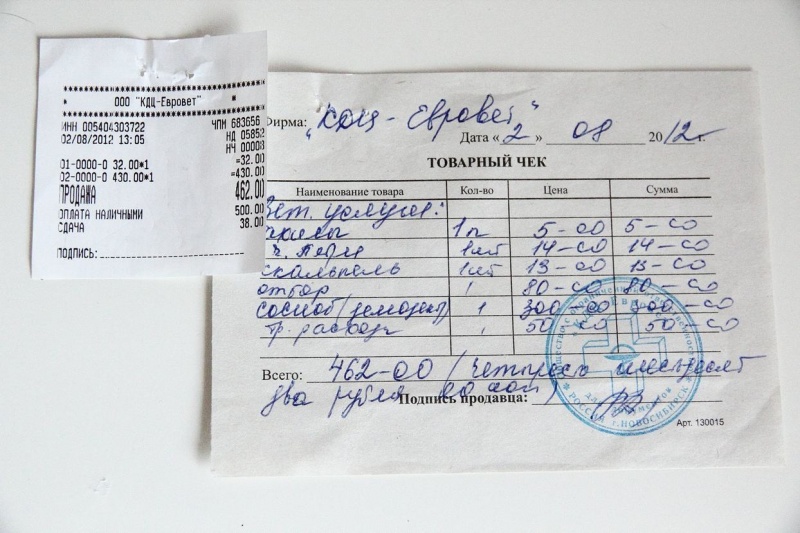 ООО "КДЦ-Евровет"
ИНН 005404303722 ЧПМ 683656
02/08/2012 13:05 НД 05852
НЧ 00008
01-0000-0 32.00*1 =32.00
02-0000-0 430.00*1 =430.00
ПРОДАЖА 462.00
ОПЛАТА НАЛИЧНЫМИ 500.00
СДАЧА 38.00
ПОДПИСЬ:
Фирма: "КДЦ - Евровет"
Дата «2» 08 2012 г.
ТОВАРНЫЙ ЧЕК
Наименование товара Кол-во Цена Сумма
Вет. услуги:
1п 5-00 5-00
1шт 14-00 14-00
скальпель 1шт 13-00 13-00
отбор 1 80-00 80-00
соскоб (демодект) 1 300-00 300-00
тр. расход 1 50-00 50-00
Всего: 462-00 (Четыреста шестьдесят
два рубля 00 коп)
Подпись продавца:
для документов
РОССИЯ г. НОВОСИБИРСК
Арт. 130015